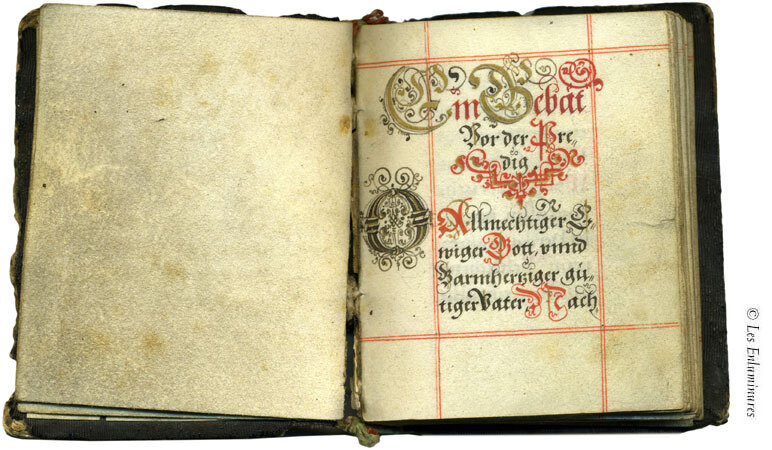 Ein Gebät
Vor der Pre=
dig.
O Allmechtiger E=
wiger Gott, vnnd
Barmhertziger, gü=
tiger Vater Mach
© Les Enluminures